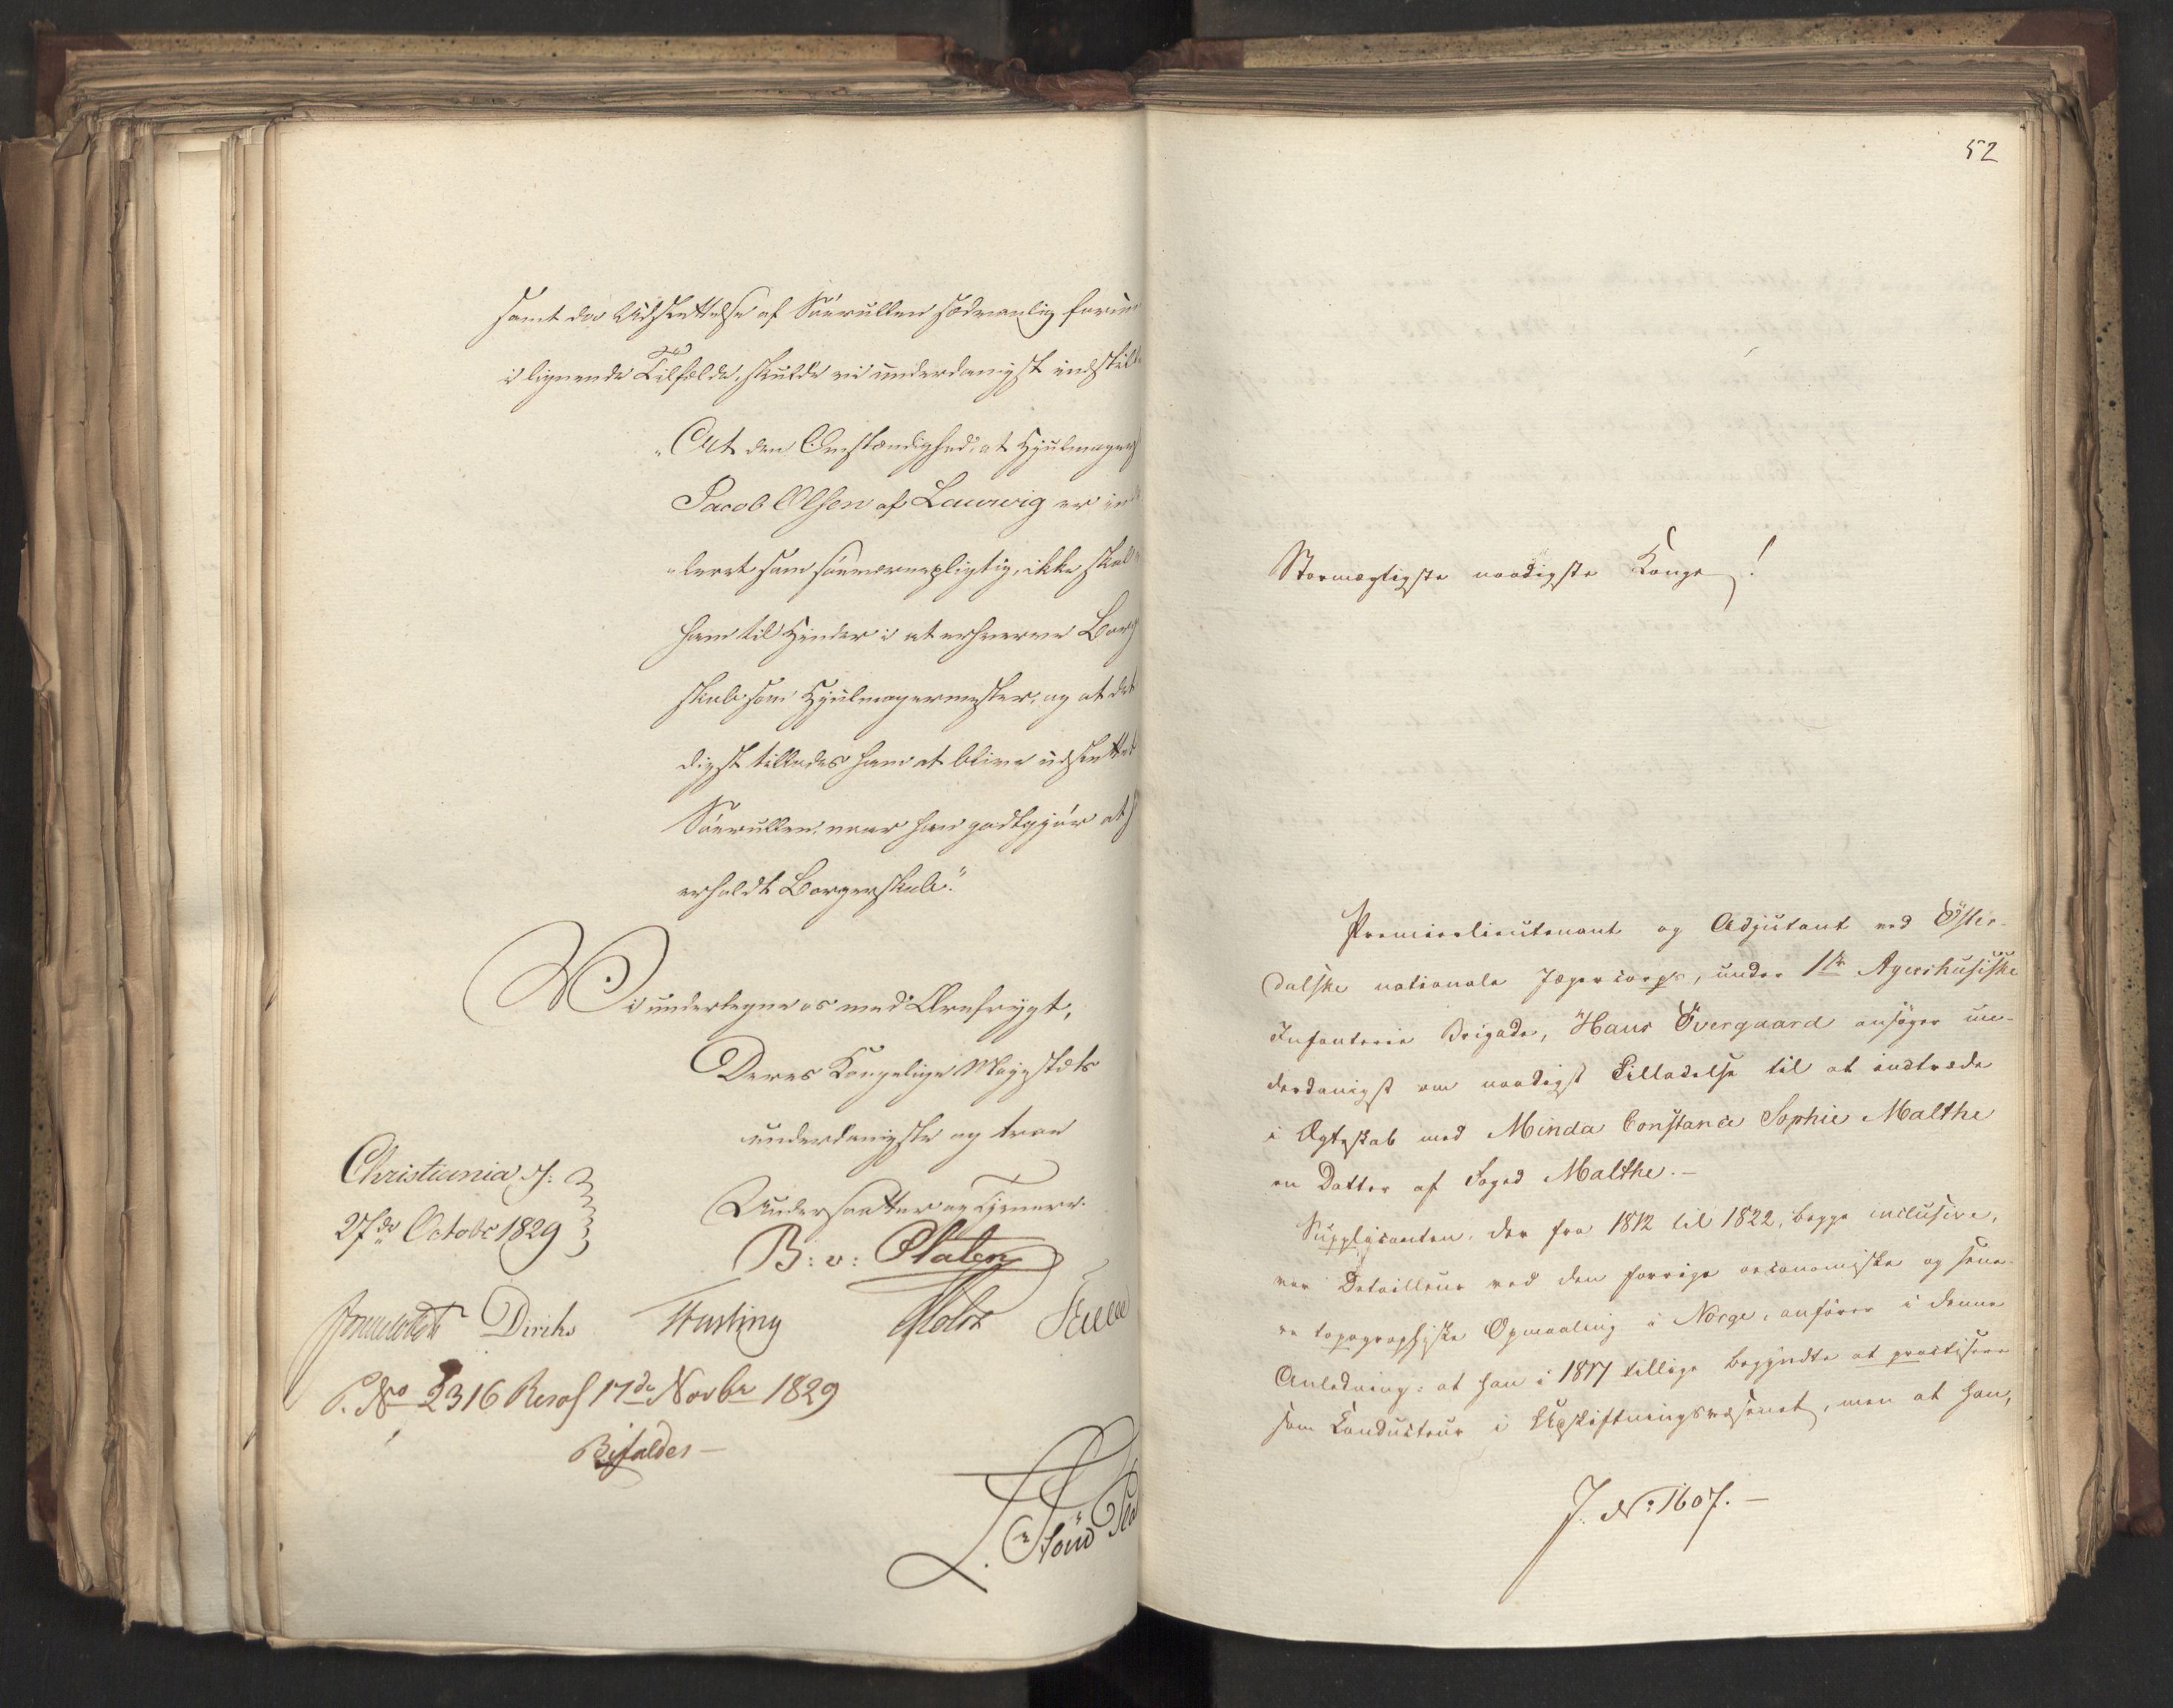 samt da Udslettelse af Söerullen sædvanlig
i lignende Tilfælde, skulde vi underdanigst indstille
"At den Omstændighed, at Hjulmager
Jacob Olsen af Laurvig er
"leert som søeværnepligtig, ikke skal
ham til Hinder i at erhverve
skab som Hjulmagermester, og at det
digst tillades ham at blive udslettet
Söerullen, naar han godtgjör at
erholdt Borgerskab."
Vi undertegne os med Ærefrygt,
Deres Kongelige Majestæts
underdanigste og troe
Undersaatter og Tjenere.
Christiania
27de Octobr 1829
B: v: Platen
Diriks Fasting Holst
P. No 2316 Resol 17de Novbr 1829
Bifaldes—
52
Stormægtigste naadigste Konge!
Premierlieutenant og Adjutant ved Öster-
dalske nationale Jægercorps, under 1ste Agershusiske
Infanterie Brigade, Hans Övergaard ansöger un-
derdanigst om naadigst Tilladelse til at indtræde
i Ægteskab med Minda Constance Sophie Malthe
en Datter af Foged Malthe.—
Supplicanten, der fra 1812 til 1822, begge inclusive,
var Detailleur ved den forrige oeconomiske og sene-
re topographiske Opmaaling i Norge, anförer i denne
Anledning: at han i 1817 tillige begyndte at practisere
som Conducteur i Udskiftningsvæsenet, men at han,
J. No 1607.—